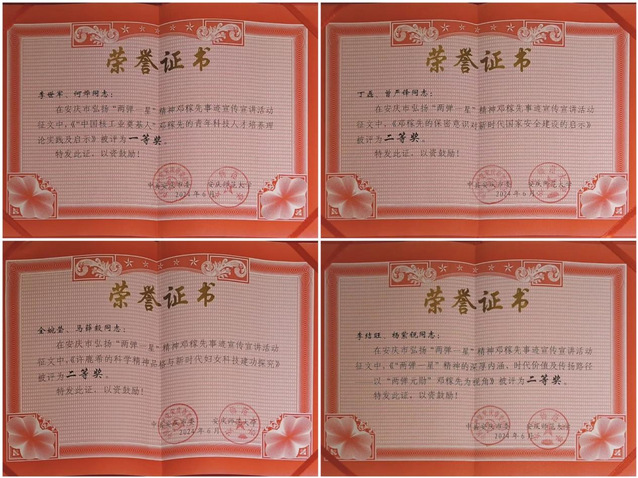 荣誉证书
李世军、何烨同志：
在安庆市弘扬“两弹一星”精神邓稼先事迹宣传宣讲活动
征文中，《“中国核工业奠基人”邓稼先的青年科技人才培养理
论实践及启示》被评为一等奖。
特发此证，以资鼓励！
中共安庆市委 安庆师范大学
2024年6月
荣誉证书
丁磊、曾严锋同志：
在安庆市弘扬“两弹一星”精神邓稼先事迹宣传宣讲活动
征文中，《邓稼先的保密意识对新时代国家安全建设的启示》
被评为二等奖。
特发此证，以资鼓励！
中共安庆市委 安庆师范大学
2024年6月
荣誉证书
金婉莹、马薛毅同志：
在安庆市弘扬“两弹一星”精神邓稼先事迹宣传宣讲活动
征文中，《许鹿希的科学精神品格与新时代妇女科技建功探究》
被评为二等奖。
特发此证，以资鼓励！
中共安庆市委 安庆师范大学
2024年6月
荣誉证书
李结旺、杨紫锐同志：
在安庆市弘扬“两弹一星”精神邓稼先事迹宣传宣讲活动
征文中，《“两弹一星”精神的深厚内涵，时代价值及传扬路径
—以“两弹元勋”邓稼先为视角》被评为二等奖。
特发此证，以资鼓励！
中共安庆市委 安庆师范大学
2024年6月